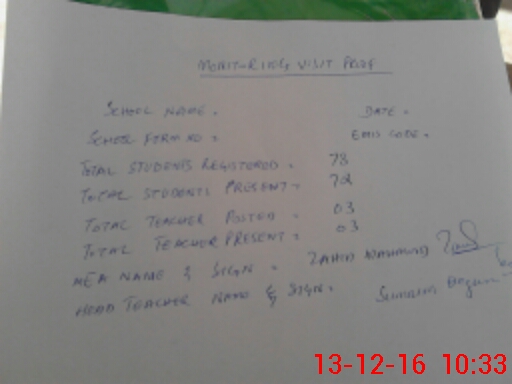 MONITORING VISIT PROF
SCHOOL NAME. DATE.
SCHOOL FORM NO. EMIS CODE.
TOTAL STUDENTS REGISTERED. 78
TOTAL STUDENTS PRESENT. 72
TOTAL TEACHER POSTED. 03
TOTAL TEACHER PRESENT. 03
MEA NAME & SIGN.
HEAD TEACHER NAME & SIGN. Sumaira Begum
13-12-16 10:33